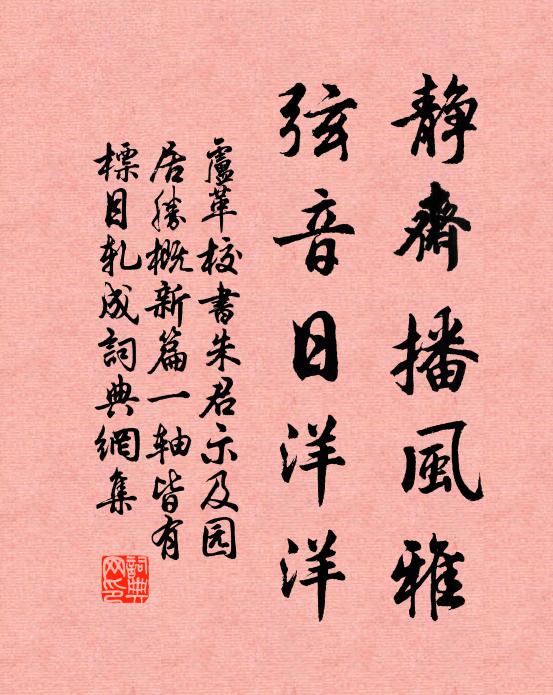 静齋播風雅
弦音日洋洋
盧革校書朱君示及园
居勝概新篇一轴皆有
標目札成詞典網集
詞典网印